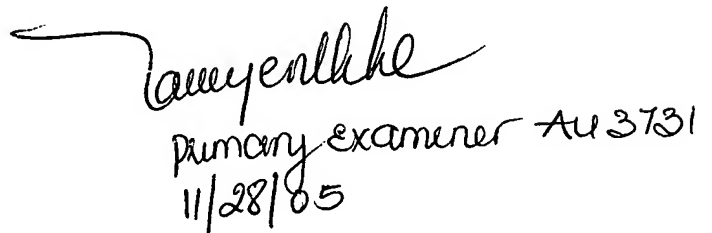 Primary Examiner AU 3731
11/28/05